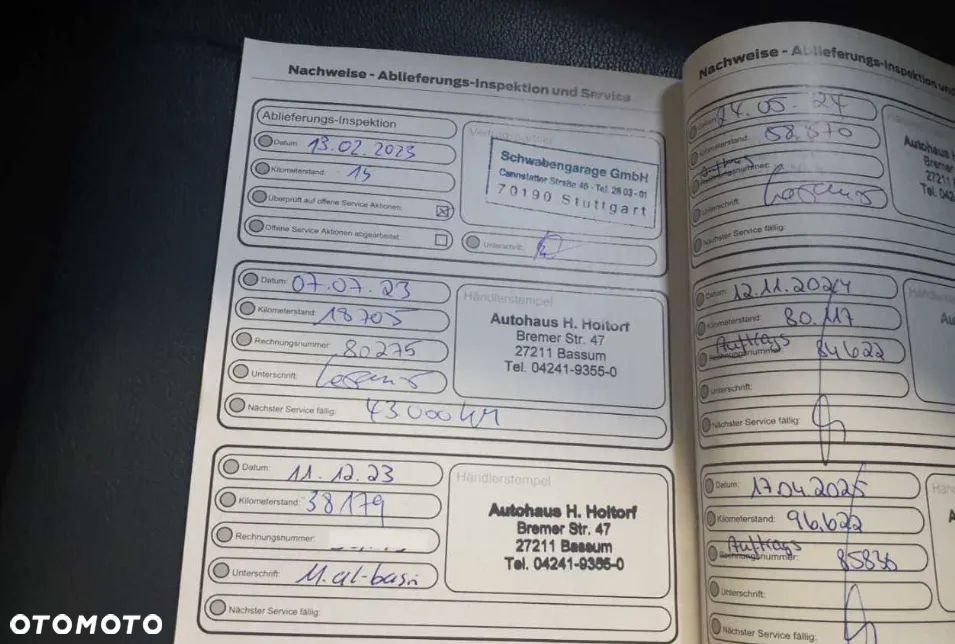 Nachweise - Ablieferungs-Inspektion und Service
Ablieferungs-Inspektion
Datum: 13.02.2023
Kilometerstand: 15
Überprüft auf offene Service Aktionen:
Offene Service Aktionen abgearbeitet:
Vertragspartner
Schwabengarage GmbH
Cannstatter Straße 46 - Tel. 28 03-01
70190 Stuttgart
Unterschrift:
Datum: 07.07.23
Kilometerstand: 18705
Rechnungsnummer: 80275
Unterschrift:
Nächster Service fällig: 43000 KM
Händlerstempel
Autohaus H. Holtorf
Bremer Str. 47
27211 Bassum
Tel. 04241-9355-0
Datum: 11.12.23
Kilometerstand: 38179
Rechnungsnummer:
Unterschrift: M.al-basri
Nächster Service fällig:
Händlerstempel
Autohaus H. Holtorf
Bremer Str. 47
27211 Bassum
Tel. 04241-9355-0
Nachweise - Ablieferungs-Inspektion und
Datum: 14.05.24
Kilometerstand: 58.870
Auftrags
Rechnungsnummer:
Unterschrift:
Nächster Service fällig:
Autohaus
Bremer
27211
Tel. 042
Datum: 12.11.2024
Kilometerstand: 80.117
Auftrags
Rechnungsnummer: 84622
Unterschrift:
Nächster Service fällig:
Datum: 17.04.2025
Kilometerstand: 96.622
Auftrags
Rechnungsnummer: 85836
Unterschrift:
Nächster Service fällig:
OTOMOTO